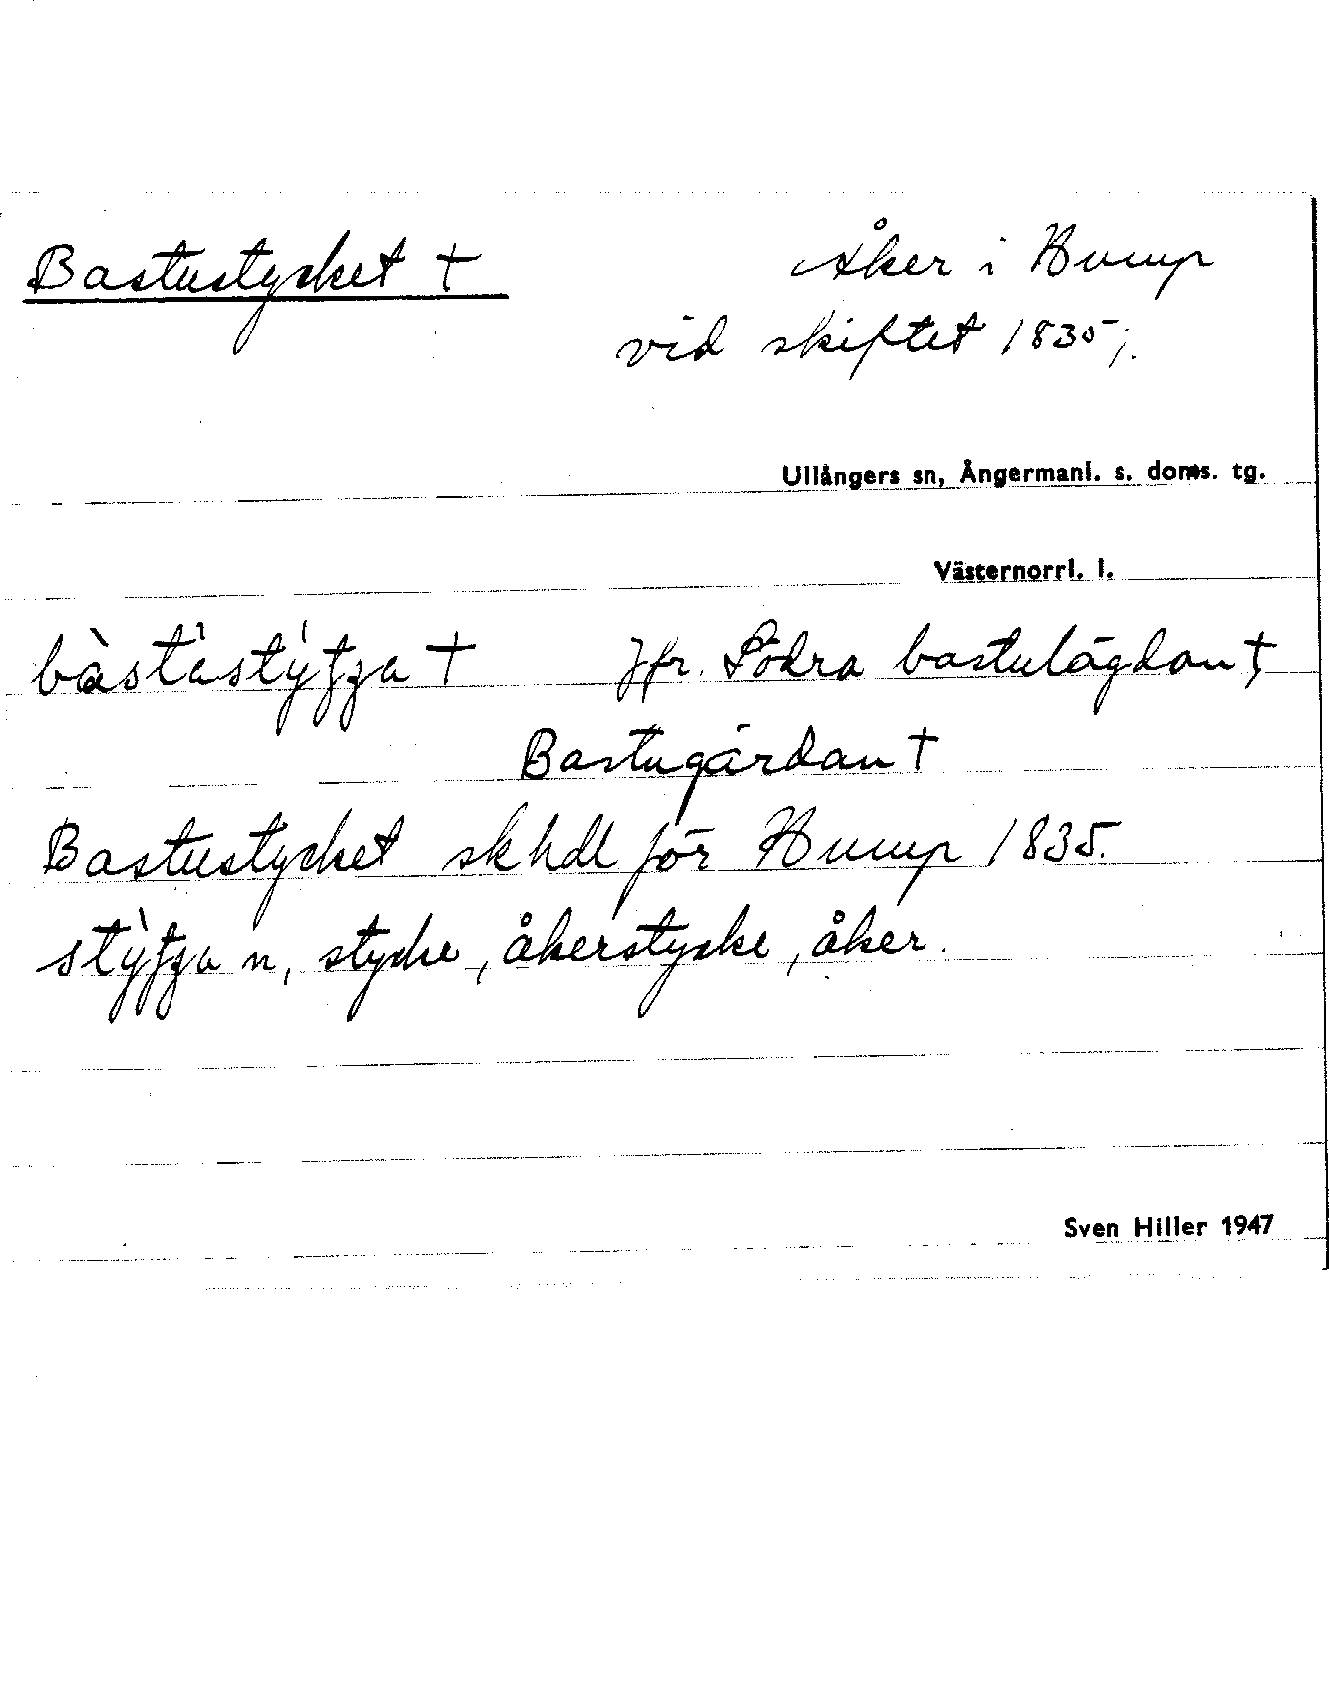 Bastustycket † Åker i Hump
vid skiftet 1835;
Ullångers sn, Ångermanl. s. doms. tg.
Västernorrl. l.
† Jfr. Södra bastulägdan †,
Bastugärdan †
Bastustycket skhdl för Hump 1835.
n, stycke, åkerstycke, åker.
Sven Hiller 1947